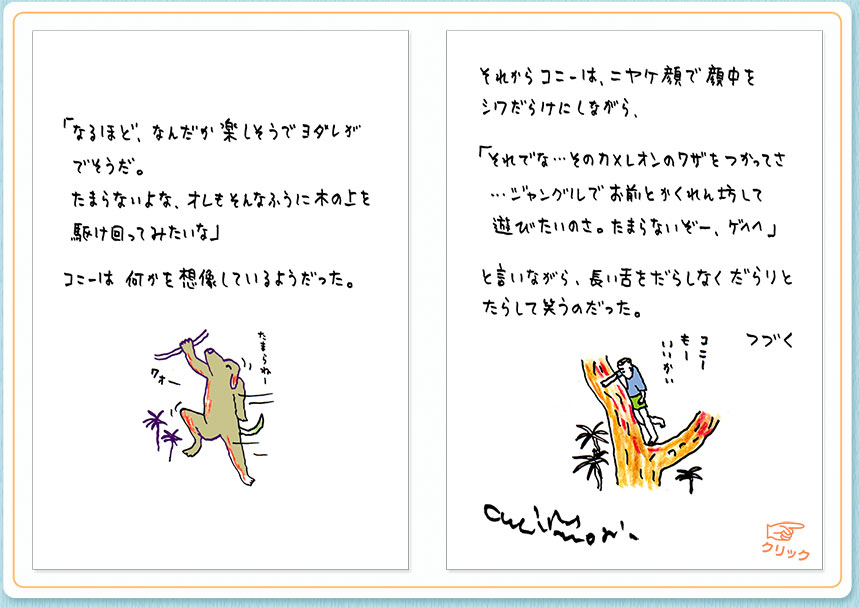 「なるほど、なんだか楽しそうでヨダレが
でそうだ。
たまらないよな、オレもそんなふうに木の上を
駆け回ってみたいな」
コニーは何かを想像しているようだった。
たまらねー
ウォー
それからコニーは、ニヤケ顔で顔中を
シワだらけにしながら、
「それでな…そのカメレオンのワザをつかってさ
…ジャングルでお前とかくれん坊して
遊びたいのさ。たまらないぞー、ゲヘヘ」
と言いながら、長い舌をだらしなくだらりと
たらして笑うのだった。
つづく
コニー
もー
いいかい
クリック